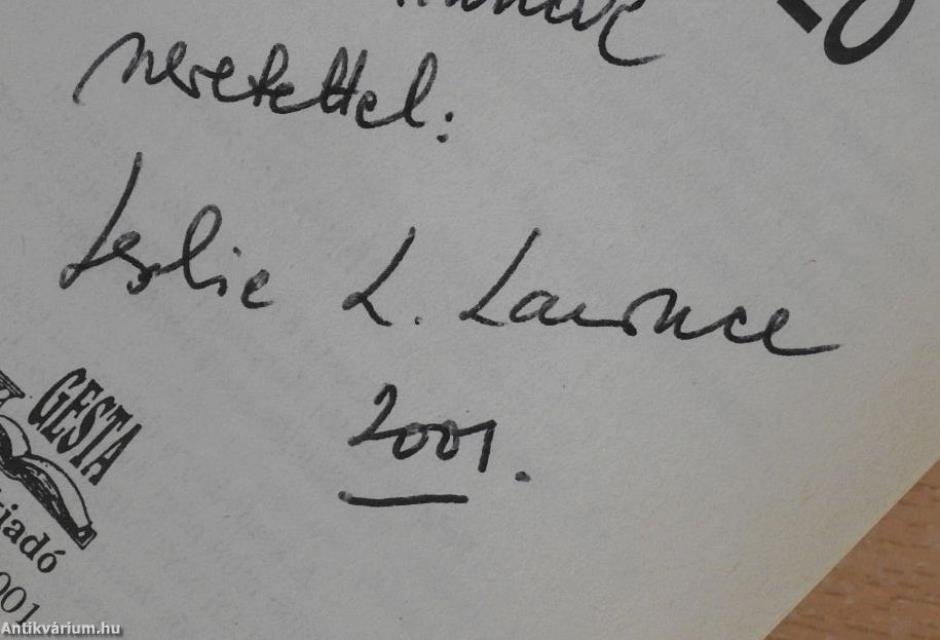 szeretettel:
Leslie L. Lawrence
2001.
GESTA
Antikvárium.hu